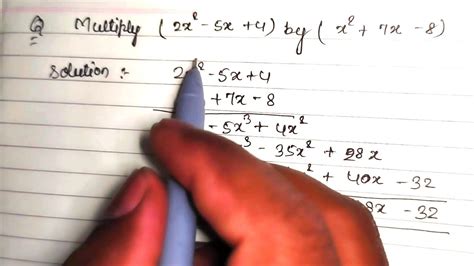 Q Multiply (2x² - 5x + 4) by (x² + 7x - 8)
Solution :- 2x² - 5x + 4
+ 7x - 8
- 5x³ + 4x²
³ - 35x² + 28x
² + 40x - 32
8x - 32